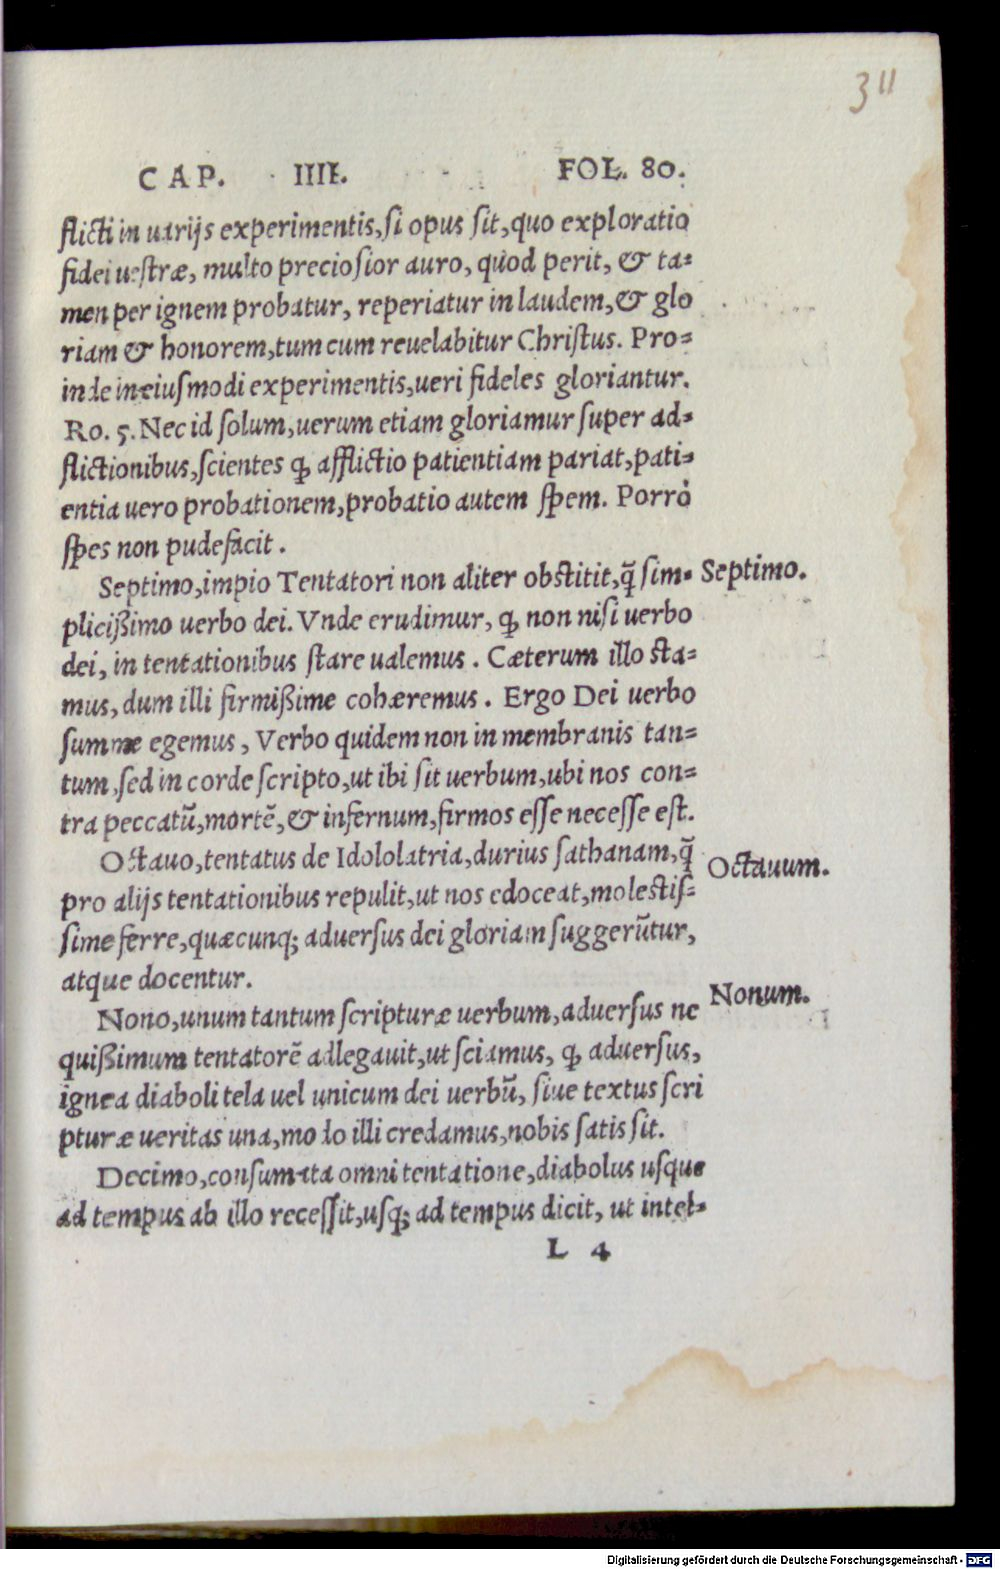 311
CAP. IIII. FOL. 80.
flicti in uarijs experimentis, si opus sit, quo exploratio
fidei uestræ, multo preciosior auro, quod perit, & ta-
men per ignem probatur, reperiatur in laudem, & glo
riam & honorem, tum cum reuelabitur Christus. Pro-
inde in eiusmodi experimentis, ueri fideles gloriantur.
Ro. 5. Nec id solum, uerum etiam gloriamur super ad-
flictionibus, scientes ꝙ afflictio patientiam pariat, pati-
entia uero probationem, probatio autem spem. Porrò
spes non pudefacit.
Septimo, impio Tentatori non aliter obstitit, q̃ sim-
Septimo.
plicißimo uerbo dei. Vnde erudimur, ꝙ non nisi uerbo
dei, in tentationibus stare ualemus. Cæterum illo sta-
mus, dum illi firmißime cohæremus. Ergo Dei uerbo
summe egemus, Verbo quidem non in membranis tan-
tum, sed in corde scripto, ut ibi sit uerbum, ubi nos con-
tra peccatũ, mortẽ, & infernum, firmos esse necesse est.
Octauo, tentatus de Idololatria, durius sathanam, q̃
Octauum.
pro alijs tentationibus repulit, ut nos edoceat, molestis-
sime ferre, quæcunq; aduersus dei gloriam suggerũtur,
atque docentur.
Nono, unum tantum scripturæ uerbum, aduersus ne
Nonum.
quißimum tentatorẽ adlegauit, ut sciamus, ꝙ aduersus,
ignea diaboli tela uel unicum dei uerbũ, siue textus scri
pturæ ueritas una, modo illi credamus, nobis satis sit.
Decimo, consumata omni tentatione, diabolus usque
ad tempus ab illo recessit, usq; ad tempus dicit, ut intel-
L 4
Digitalisierung gefördert durch die Deutsche Forschungsgemeinschaft - DFG